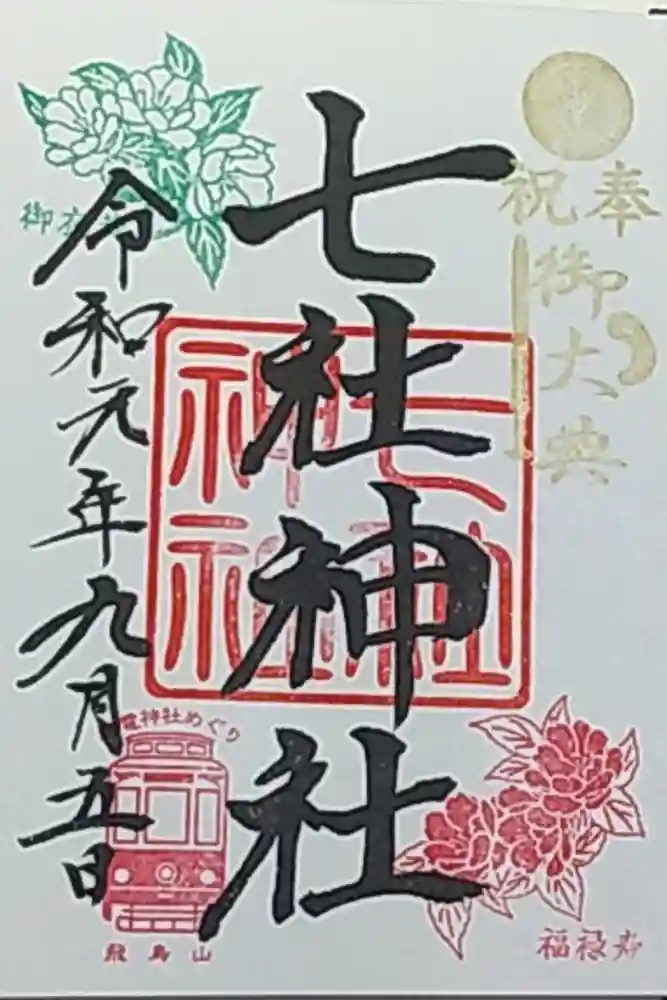 奉祝
御大典
七社神社
七社神社
令和元年九月五日
御衣
電神社めぐり
飛鳥山
福禄寿